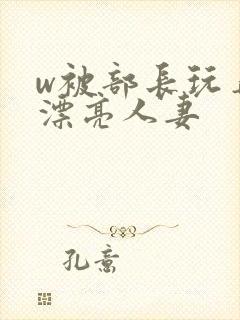 w被部長玩
漂亮人妻
孔意